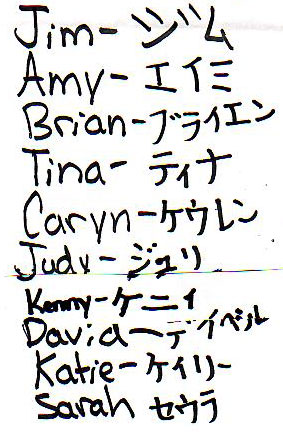 Jim- ジム
Amy- エイミ
Brian-ブライエン
Tina- ティナ
Caryn-ケウレン
Judy- ジュリ
Kenny-ケニイ
David-デイベル
Katie-ケイリー
Sarah セウラ